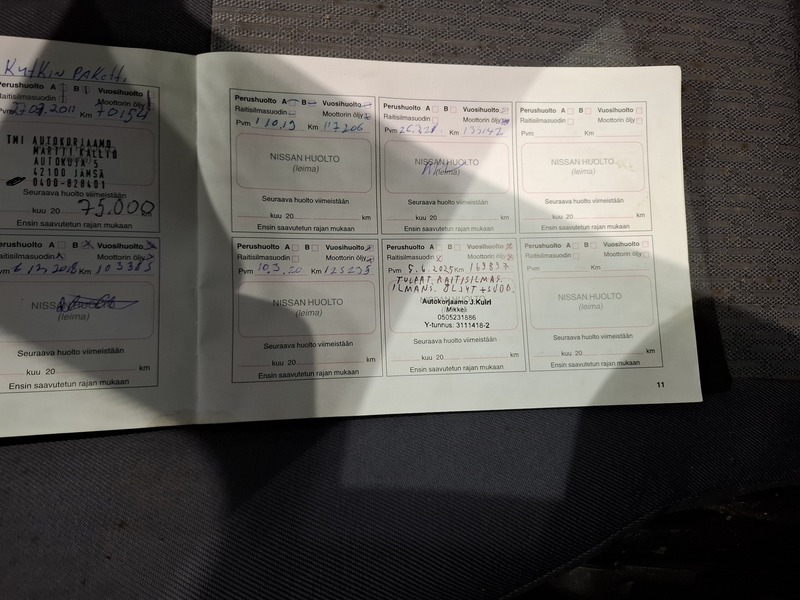 KYTKIN PAKOTT.
Perushuolto A B Vuosihuolto
Raitisilmasuodin Moottorin öljy
Pvm 27.07.2011 Km 70154
TMI AUTOKORJAAMO
MARTTI KALLIO
AUTOKUJA 5
42100 JÄMSÄ
0400-828401
Seuraava huolto viimeistään
kuu 20 75.000 km
Ensin saavutetun rajan mukaan
Perushuolto A B Vuosihuolto
Raitisilmasuodin Moottorin öljy
Pvm 6 12 2018 Km 103383
NISSAN HUOLTO
(leima)
Seuraava huolto viimeistään
kuu 20 km
Ensin saavutetun rajan mukaan
Perushuolto A B Vuosihuolto
Raitisilmasuodin Moottorin öljy
Pvm 1 10.19 Km 117206
NISSAN HUOLTO
(leima)
Seuraava huolto viimeistään
kuu 20 km
Ensin saavutetun rajan mukaan
Perushuolto A B Vuosihuolto
Raitisilmasuodin Moottorin öljy
Pvm Km 133142
NISSAN HUOLTO
(leima)
Seuraava huolto viimeistään
kuu 20 km
Ensin saavutetun rajan mukaan
Perushuolto A B Vuosihuolto
Raitisilmasuodin Moottorin öljy
Pvm Km
NISSAN HUOLTO
(leima)
Seuraava huolto viimeistään
kuu 20 km
Ensin saavutetun rajan mukaan
Perushuolto A B Vuosihuolto
Raitisilmasuodin Moottorin öljy
Pvm 10.3.20 Km 125235
NISSAN HUOLTO
(leima)
Seuraava huolto viimeistään
kuu 20 km
Ensin saavutetun rajan mukaan
Perushuolto A B Vuosihuolto
Raitisilmasuodin Moottorin öljy
Pvm 5.6.2025 Km 163837
RAITISILMAS.
ILMANS. ÖLJYT + SUOD.
NISSAN HUOLTO
Autokorjaamo J.Kuiri
Mikkeli
0505231886
Y-tunnus: 3111418-2
Seuraava huolto viimeistään
kuu 20 km
Ensin saavutetun rajan mukaan
Perushuolto A B Vuosihuolto
Raitisilmasuodin Moottorin öljy
Pvm Km
NISSAN HUOLTO
(leima)
Seuraava huolto viimeistään
kuu 20 km
Ensin saavutetun rajan mukaan
11